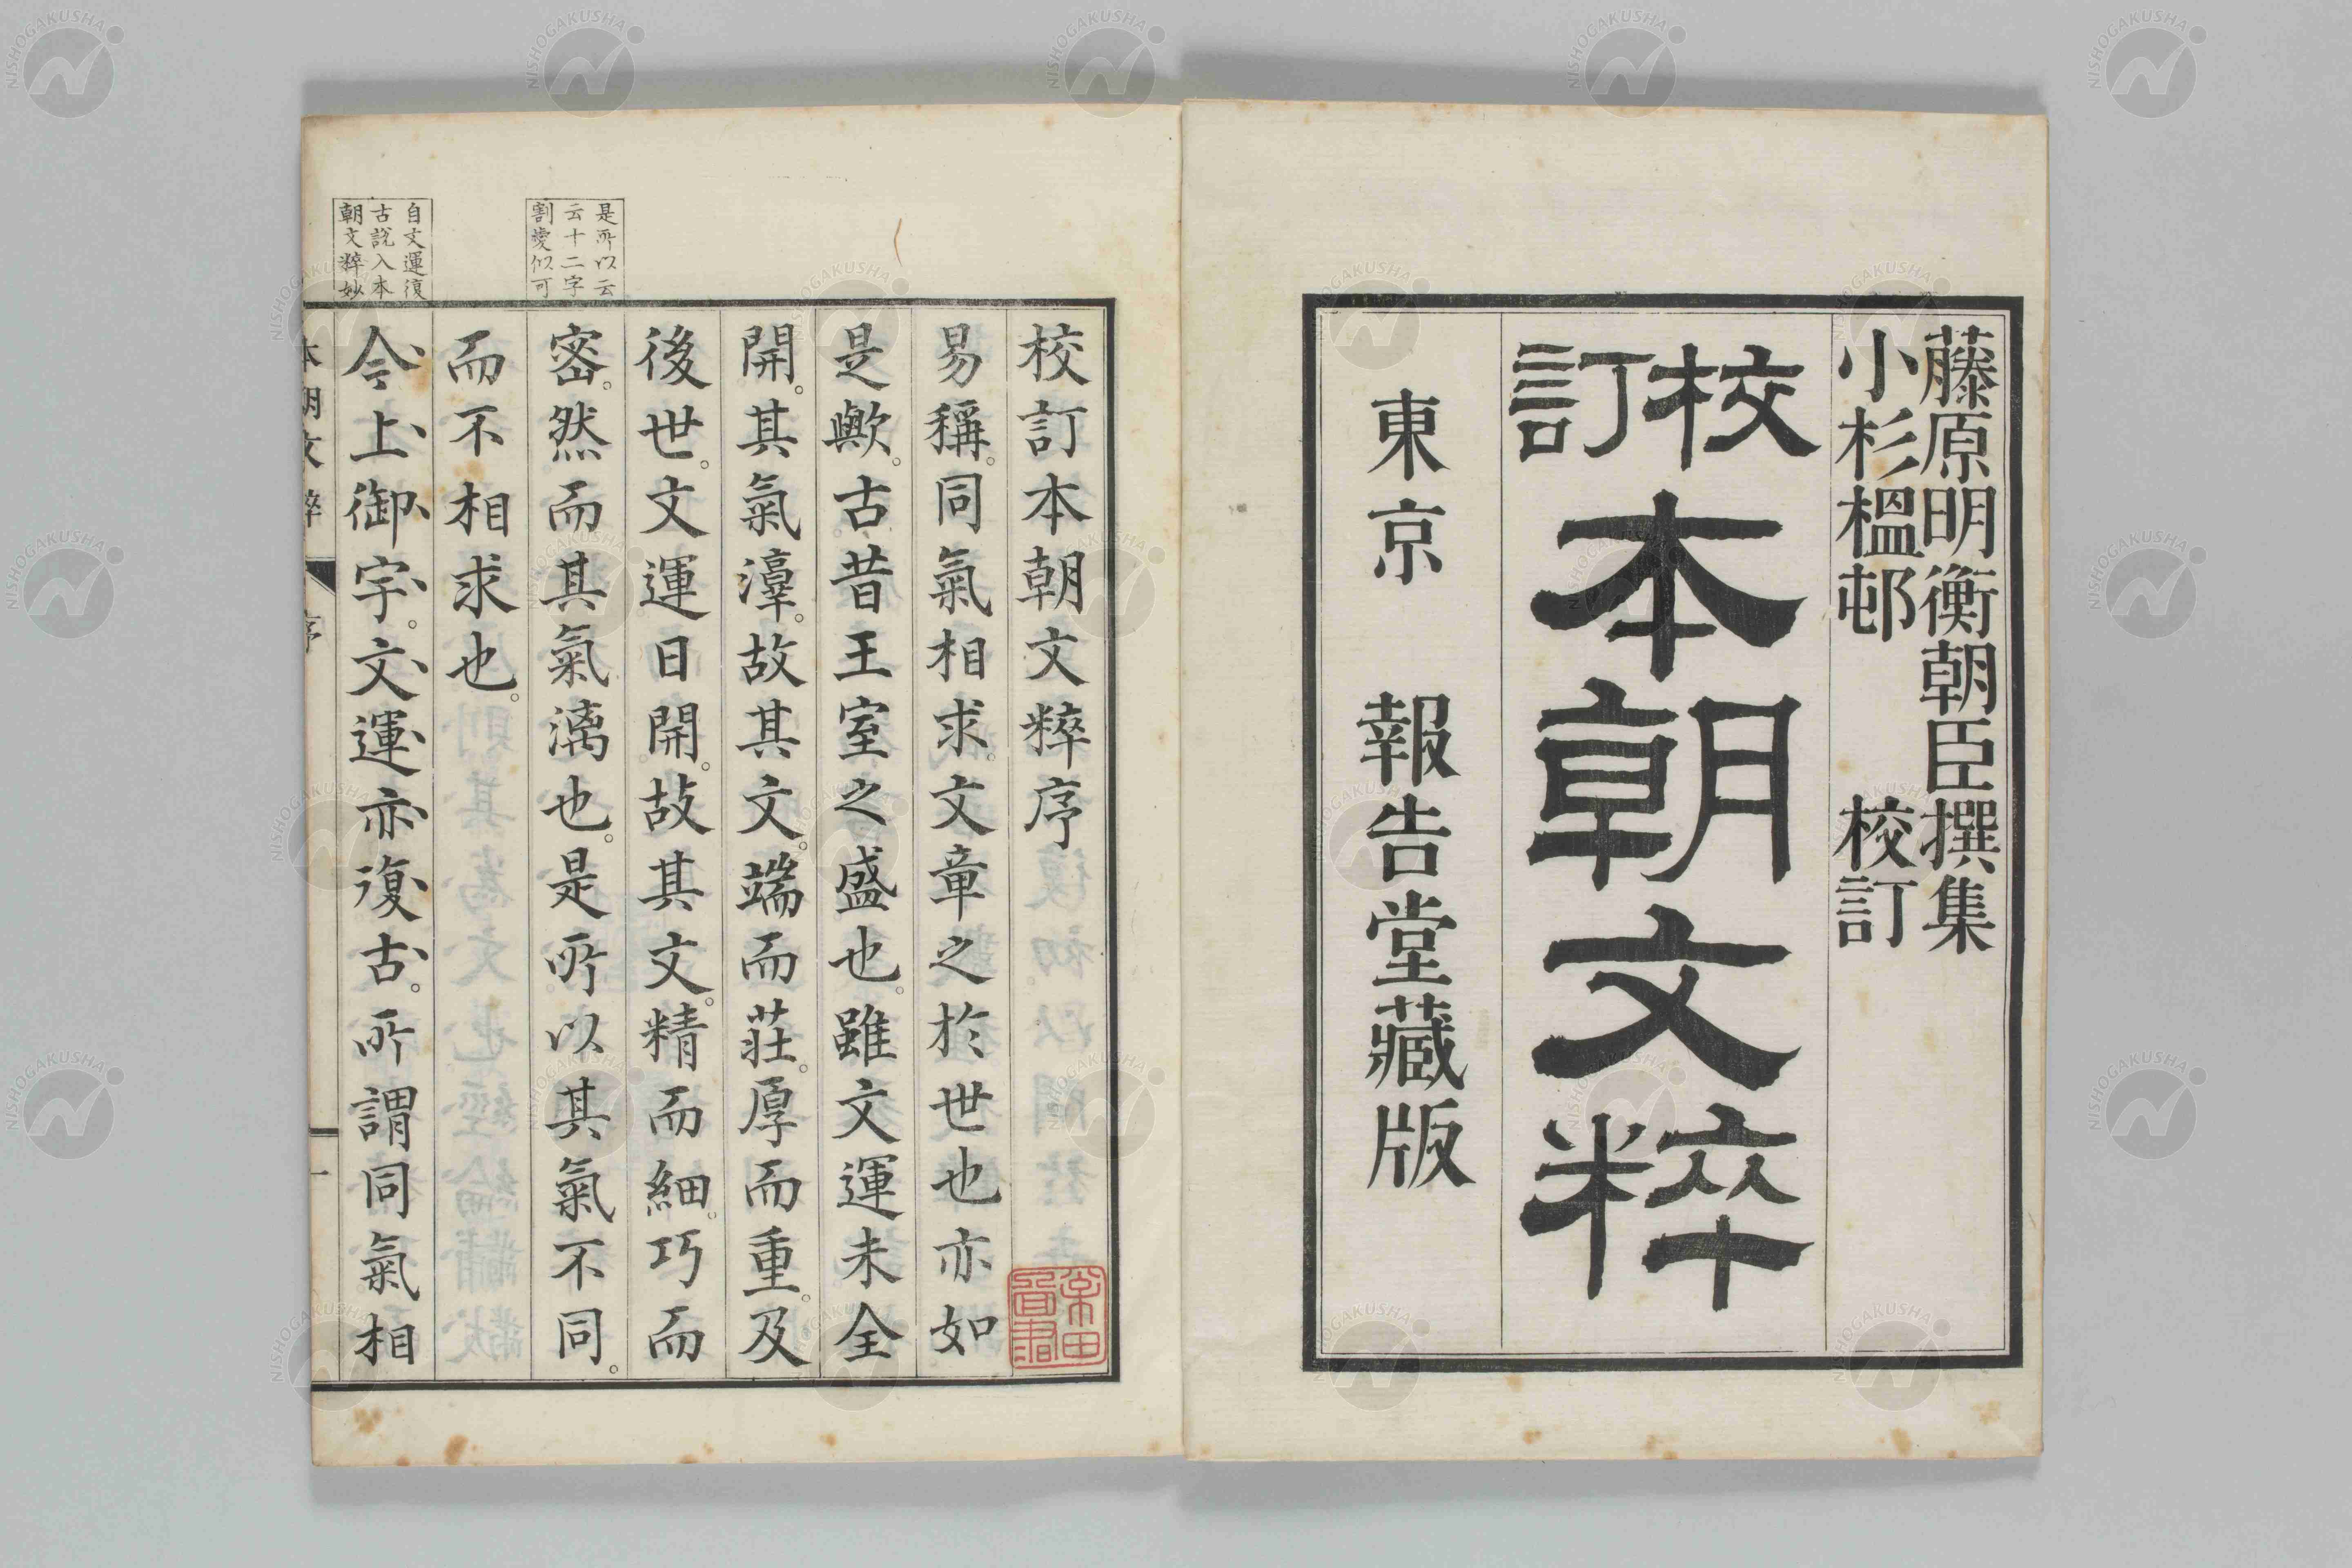 藤原明衡朝臣撰集
小杉榲邨 校訂
校訂
本朝文粹
東京 報告堂藏版
校訂本朝文粹序
易稱。同氣相求。文章之於世也亦如
是歟。古昔王室之盛也。雖文運未全
開。其氣漳。故其文。端而莊。厚而重。及
後世。文運日開。故其文。精而細。巧而
密。然而其氣漓也。是所以其氣不同。
而不相求也。
今上御宇。文運亦復古。所謂同氣相
是所以云
云十二字
割愛似可
自文運復
古說入本
朝文粹妙
本朝文粹 序 一
NISHOGAKUSHA